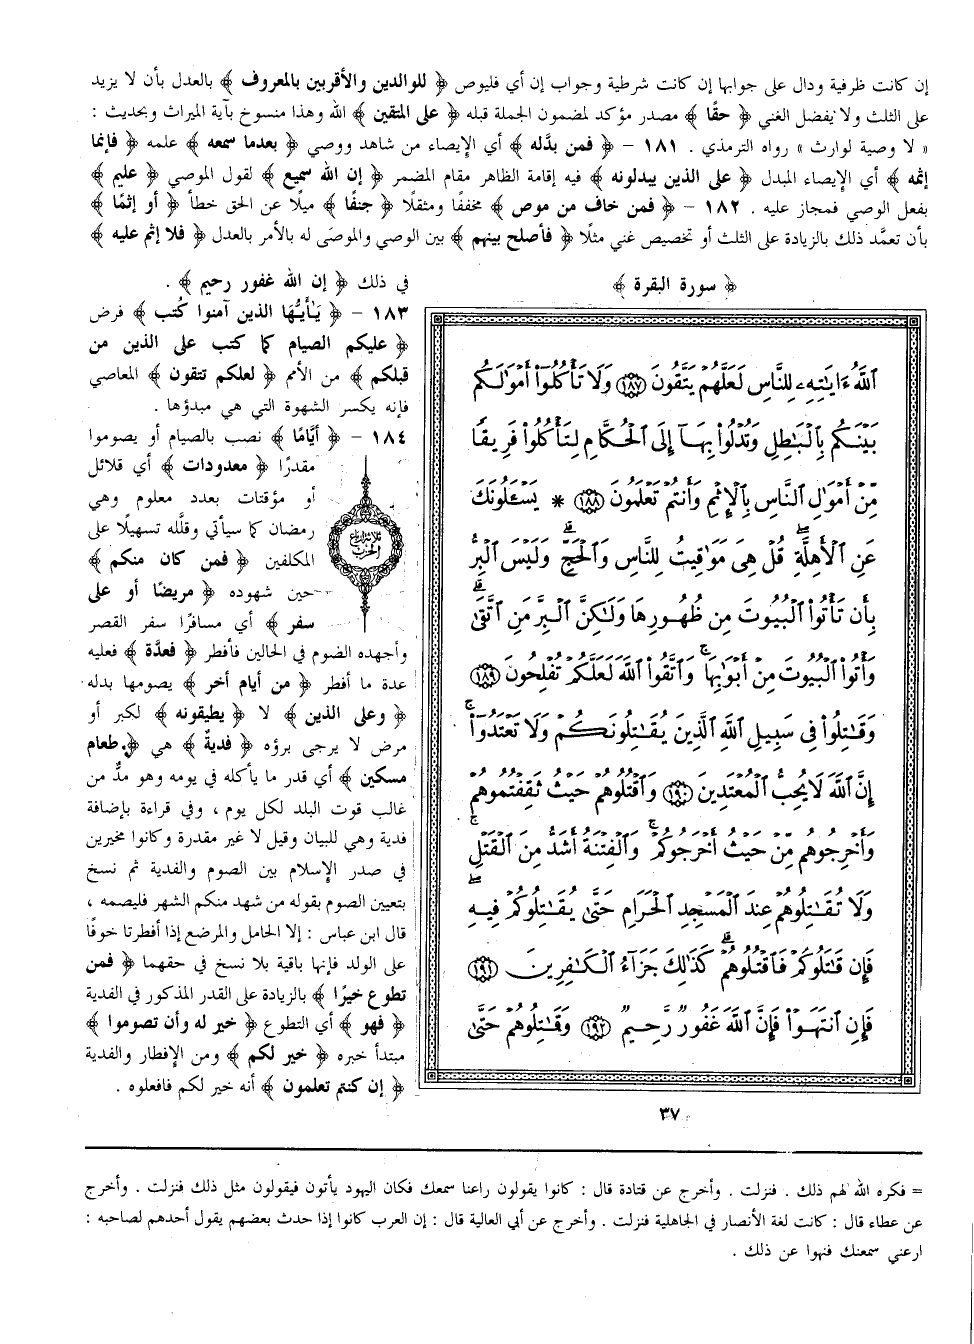 إن كانت ظرفية ودال على جوابها إن كانت شرطية وجواب إن أي فليوص ﴿ للوالدين والأقربين بالمعروف ﴾ بالعدل بأن لا يزيد
على الثلث ولا يفضل الغني ﴿ حقًا ﴾ مصدر مؤكد لمضمون الجملة قبله ﴿ على المتقين ﴾ الله وهذا منسوخ بآية الميراث وبحديث :
« لا وصية لوارث » رواه الترمذي . ١٨١ – ﴿ فمن بدَّله ﴾ أي الإيصاء من شاهد ووصي ﴿ بعدما سمعه ﴾ علمه ﴿ فإنما
إثمه ﴾ أي الإيصاء المبدل ﴿ على الذين يبدلونه ﴾ فيه إقامة الظاهر مقام المضمر ﴿ إن الله سميع ﴾ لقول الموصي ﴿ عليم ﴾
بفعل الوصي فمجاز عليه . ١٨٢ – ﴿ فمن خاف من موص ﴾ مخففًا ومثقلًا ﴿ جنفًا ﴾ ميلًا عن الحق خطأ ﴿ أو إثمًا ﴾
بأن تعمَّد ذلك بالزيادة على الثلث أو تخصيص غني مثلًا ﴿ فأصلح بينهم ﴾ بين الوصي والموصَى له بالأمر بالعدل ﴿ فلا إثم عليه ﴾
في ذلك ﴿ إن الله غفور رحيم ﴾ .
١٨٣ – ﴿ يَـٰأَيُّهَا الذين آمنوا كُتب ﴾ فرض
﴿ عليكم الصيام كما كتب على الذين من
قبلكم ﴾ من الأمم ﴿ لعلكم تتقون ﴾ المعاصي
فإنه يكسر الشهوة التي هي مبدؤها .
١٨٤ – ﴿ أيَّامًا ﴾ نصب بالصيام أو يصوموا
مقدرًا ﴿ معدودات ﴾ أي قلائل
أو مؤقتات بعدد معلوم وهي
رمضان كما سيأتي وقلَّله تسهيلًا على
المكلفين ﴿ فمن كان منكم ﴾
حين شهوده ﴿ مريضًا أو على
سفر ﴾ أي مسافرًا سفر القصر
وأجهده الضوم في الحالين فأفطر ﴿ فعدَّة ﴾ فعليه
عدة ما أفطر ﴿ من أيام أخر ﴾ يصومها بدله
﴿ وعلى الذين ﴾ لا ﴿ يطيقونه ﴾ لكبر أو
مرض لا يرجى برؤه ﴿ فديةٌ ﴾ هي ﴿ طعام
مسكين ﴾ أي قدر ما يأكله في يومه وهو مدٌّ من
غالب قوت البلد لكل يوم ، وفي قراءة بإضافة
فدية وهي للبيان وقيل لا غير مقدرة وكانوا مخيرين
في صدر الإسلام بين الصوم والفدية ثم نسخ
بتعيين الصوم بقوله من شهد منكم الشهر فليصمه ،
قال ابن عباس : إلا الحامل والمرضع إذا أفطرتا خوفًا
على الولد فإنها باقية بلا نسخ في حقهما ﴿ فمن
تطوع خيرًا ﴾ بالزيادة على القدر المذكور في الفدية
﴿ فهو ﴾ أي التطوع ﴿ خير له وأن تصوموا ﴾
مبتدأ خبره ﴿ خير لكم ﴾ ومن الإفطار والفدية
﴿ إن كنتم تعلمون ﴾ أنه خير لكم فافعلوه .
﴿ سورة البقرة ﴾
ٱللَّهُ ءَايَـٰتِهِۦ لِلنَّاسِ لَعَلَّهُمْ يَتَّقُونَ ١٨٧ وَلَا تَأْكُلُوٓا۟ أَمْوَٰلَكُم
بَيْنَكُم بِٱلْبَـٰطِلِ وَتُدْلُوا۟ بِهَآ إِلَى ٱلْحُكَّامِ لِتَأْكُلُوا۟ فَرِيقًا
مِّنْ أَمْوَٰلِ ٱلنَّاسِ بِٱلْإِثْمِ وَأَنتُمْ تَعْلَمُونَ ١٨٨ * يَسْـَٔلُونَكَ
عَنِ ٱلْأَهِلَّةِ ۖ قُلْ هِىَ مَوَٰقِيتُ لِلنَّاسِ وَٱلْحَجِّ ۗ وَلَيْسَ ٱلْبِرُّ
بِأَن تَأْتُوا۟ ٱلْبُيُوتَ مِن ظُهُورِهَا وَلَـٰكِنَّ ٱلْبِرَّ مَنِ ٱتَّقَىٰ ۗ
وَأْتُوا۟ ٱلْبُيُوتَ مِنْ أَبْوَٰبِهَا ۚ وَٱتَّقُوا۟ ٱللَّهَ لَعَلَّكُمْ تُفْلِحُونَ ١٨٩
وَقَـٰتِلُوا۟ فِى سَبِيلِ ٱللَّهِ ٱلَّذِينَ يُقَـٰتِلُونَكُمْ وَلَا تَعْتَدُوٓا۟ ۚ
إِنَّ ٱللَّهَ لَا يُحِبُّ ٱلْمُعْتَدِينَ ١٩٠ وَٱقْتُلُوهُمْ حَيْثُ ثَقِفْتُمُوهُمْ
وَأَخْرِجُوهُم مِّنْ حَيْثُ أَخْرَجُوكُمْ ۚ وَٱلْفِتْنَةُ أَشَدُّ مِنَ ٱلْقَتْلِ ۚ
وَلَا تُقَـٰتِلُوهُمْ عِندَ ٱلْمَسْجِدِ ٱلْحَرَامِ حَتَّىٰ يُقَـٰتِلُوكُمْ فِيهِ ۖ
فَإِن قَـٰتَلُوكُمْ فَٱقْتُلُوهُمْ ۗ كَذَٰلِكَ جَزَآءُ ٱلْكَـٰفِرِينَ ١٩١
فَإِنِ ٱنتَهَوْا۟ فَإِنَّ ٱللَّهَ غَفُورٌ رَّحِيمٌ ١٩٢ وَقَـٰتِلُوهُمْ حَتَّىٰ
ثلاثة أرباع
الحزب
٣٧
= فكره الله لهم ذلك . فنزلت . وأخرج عن قتادة قال : كانوا يقولون راعنا سمعك فكان اليهود يأتون فيقولون مثل ذلك فنزلت . وأخرج
عن عطاء قال : كانت لغة الأنصار في الجاهلية فنزلت . وأخرج عن أبي العالية قال : إن العرب كانوا إذا حدث بعضهم يقول أحدهم لصاحبه :
ارعني سمعنك فنهوا عن ذلك .